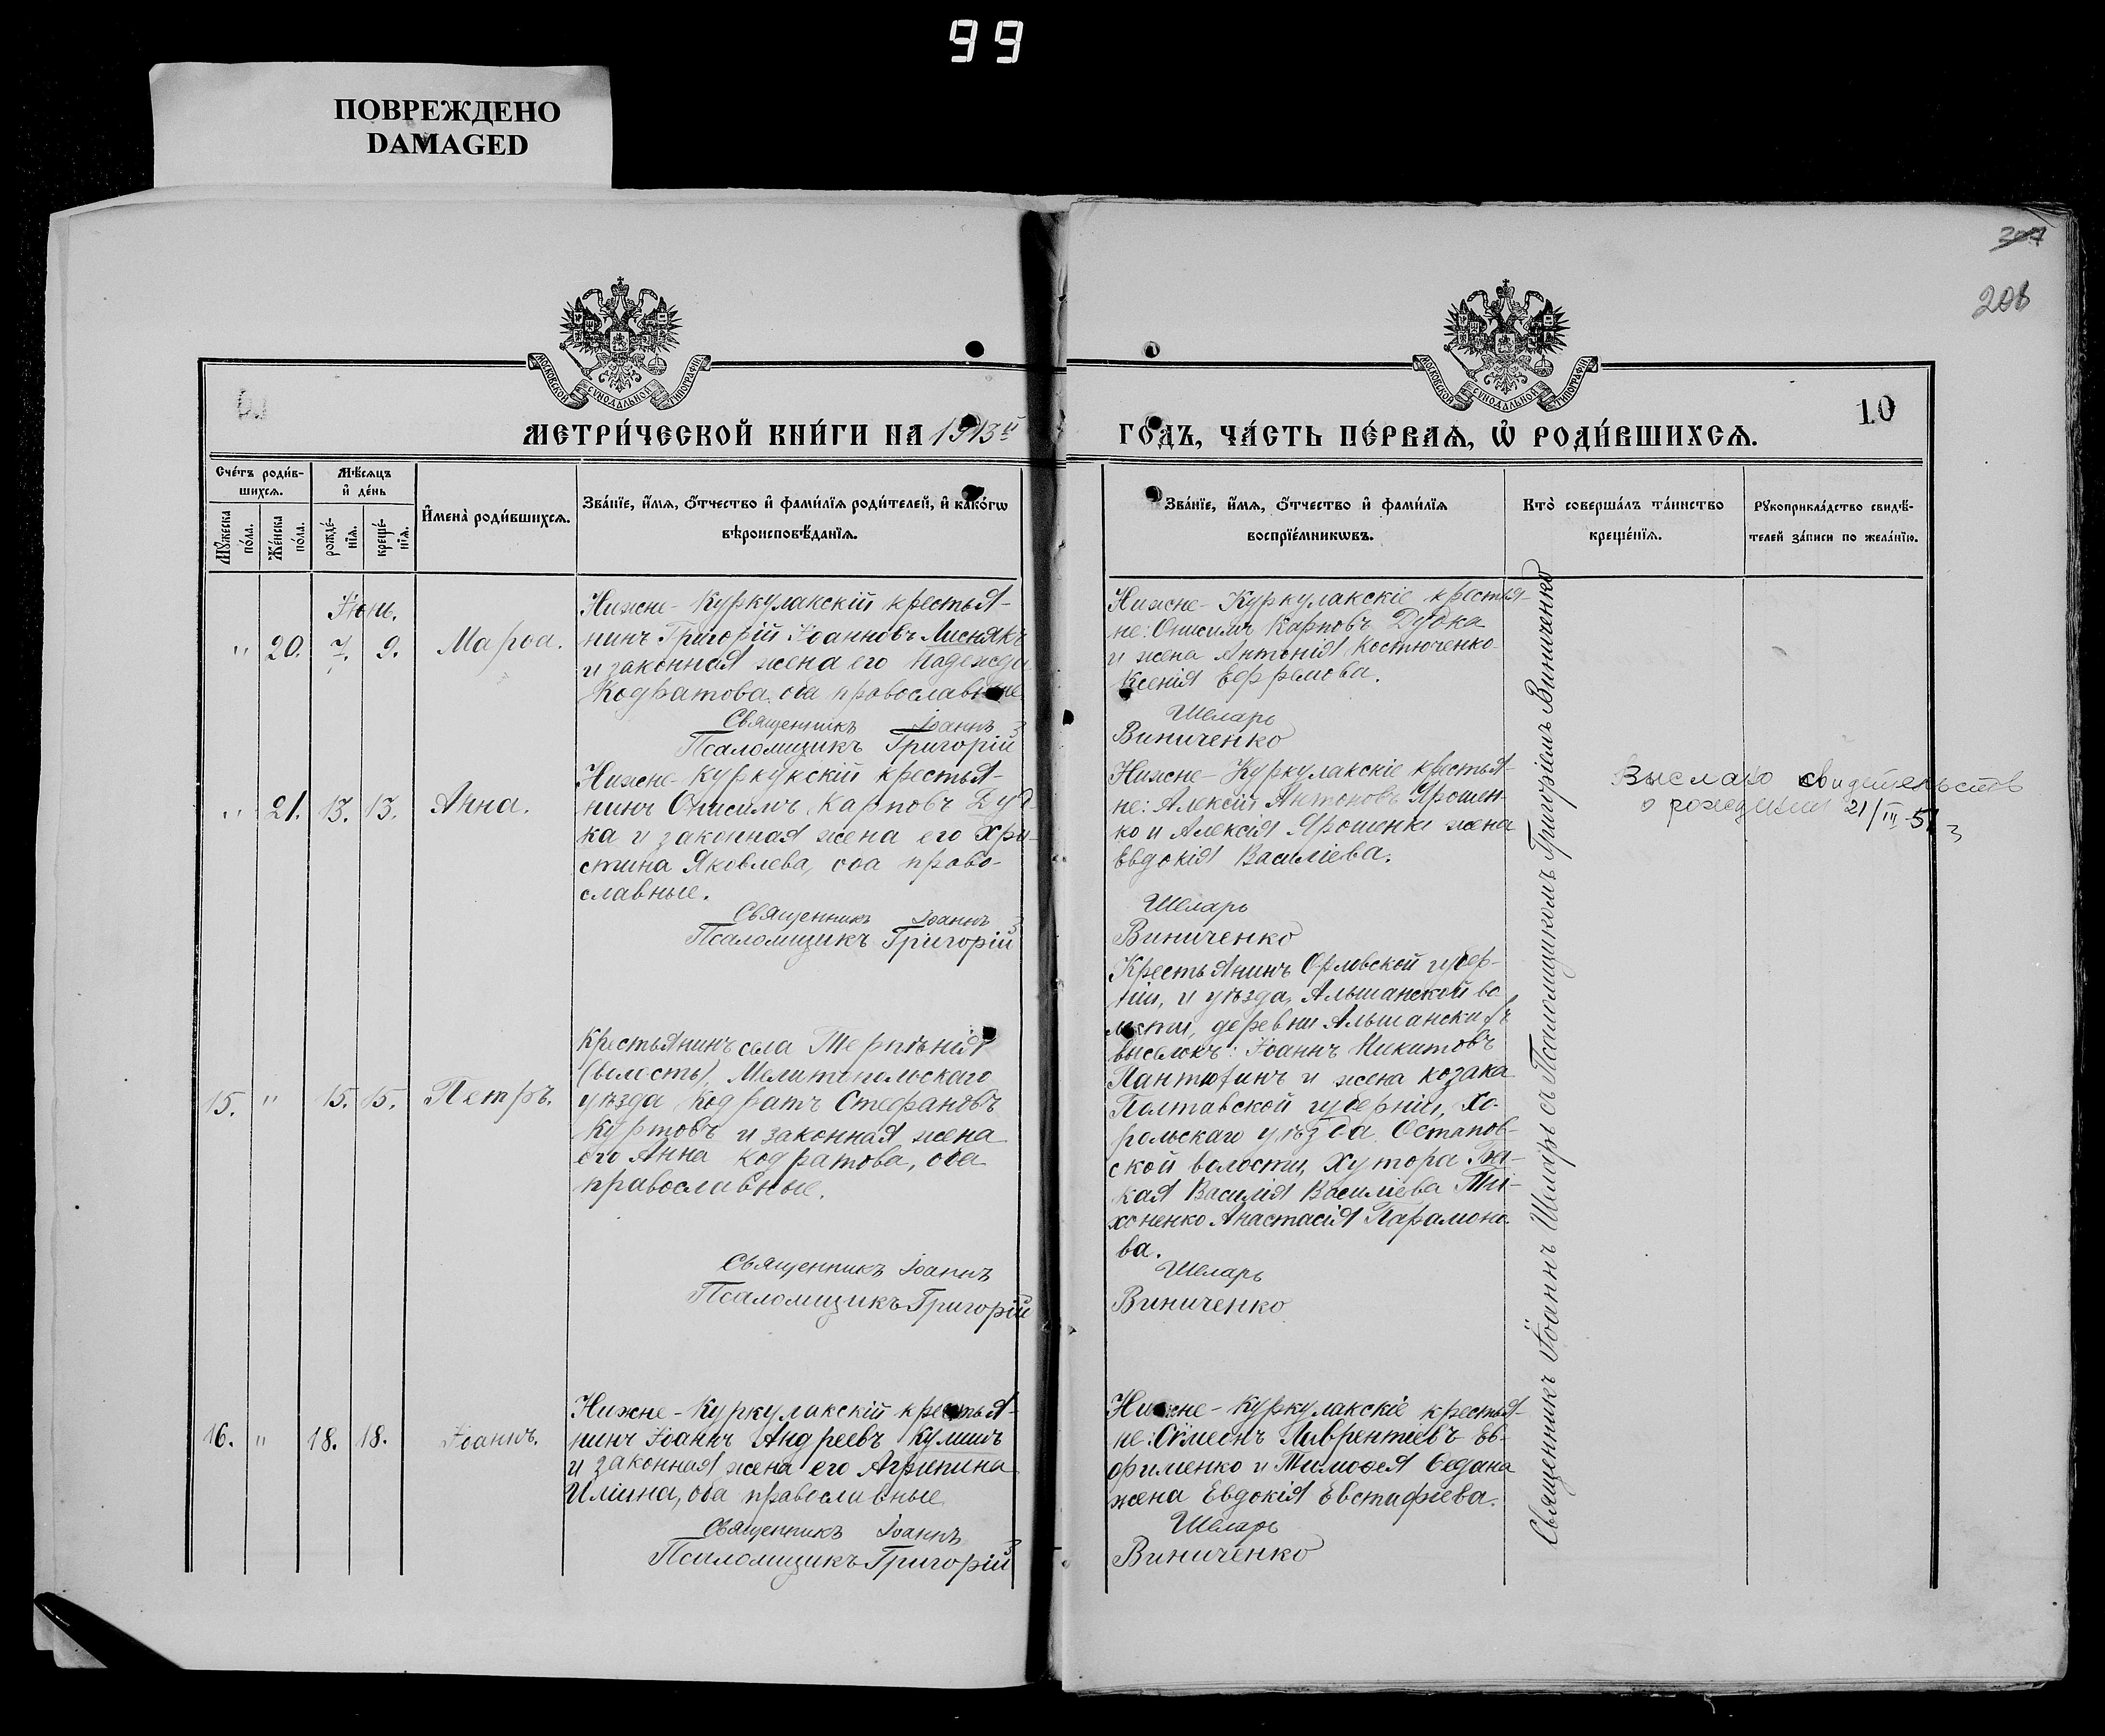 99
ПОВРЕЖДЕНО
DAMAGED
207
208
МОСКОВСКОЙ СѴНОДАЛЬНОЙ ТИПОГРАФІИ
МОСКОВСКОЙ СѴНОДАЛЬНОЙ ТИПОГРАФІИ
10
МЕТРИ́ЧЕСКОЙ КНИ́ГИ НА 1913й
ГО́ДЪ, ЧА́СТЬ ПЕ́РВАѦ, Ѡ РОДИ́ВШИХСѦ.
Сче́тъ роди́в-
шихсѧ.
Мꙋ́жеска
по́ла.
Же́нска
по́ла.
Мѣ́сѧцъ
и де́нь
рожде́-
нїѧ.
креще́-
нїѧ.
Имена̀ роди́вшихсѧ.
Зва́нїе, и́мѧ, ѻ́тчество и фами́лїѧ роди́телей, и како́гѡ
вѣроисповѣ́данїѧ.
Зва́нїе, и́мѧ, ѻ́тчество и фами́лїѧ
воспрїе́мникѡвъ.
Кто̀ соверша́лъ та́инство
креще́нїѧ.
Рꙋкоприкла́дство свидѣ́-
телей за́писи по жела́нїю.
Іюнь.
" 20. 7. 9. Марѳа.
Нижне-Куркулакскій крестья-
нинъ Григорій Іоанновъ Лиснякъ
и законная жена его Надежда
Кодратова, оба православные
Священникъ Іоаннъ
Псаломщикъ Григорій
Нижне-Куркулакскіе крестья-
не: Онисимъ Карповъ Дудка
и жена Антонія Костюченко
Ксенія Ефремова.
Шеларь
Виниченко
" 21. 13. 13. Анна.
Нижне-Куркукскій крестья-
нинъ Онисимъ Карповъ Дуд-
ка и законная жена его Хри-
стина Яковлева, оба право-
славные.
Священникъ Іоаннъ
Псаломщикъ Григорій
Нижне-Куркулакскіе крестья-
не: Алексій Антоновъ Ярошен-
ко и Алексія Ярошенка жена
Евдокія Василіева.
Шеларь
Виниченко
Выслано свидетельств
о рождении 21/III-51
15. " 15. 15. Петръ.
Крестьянинъ села Терпѣнія
(волость), Мелитопольскаго
уѣзда Кодратъ Стефановъ
Куртовъ и законная жена
его Анна Кодратова, оба
православные.
Священникъ Іоаннъ
Псаломщикъ Григорій
Крестьянинъ Орловской губер-
ніи, и уѣзда, Альшанской во
лости, деревни Альшанскихъ
выселокъ: Іоаннъ Никитовъ
Пантюхинъ и жена козака
Полтавской губерніи, Хо-
рольскаго уѣзда Остапов-
ской волости, Хутора
кая Василія Василіева Ти-
хоненко Анастасія Парамоно-
ва.
Шеларь
Виниченко
16. " 18. 18. Іоаннъ.
Нижне-Куркулакскій крестья-
нинъ Іоаннъ Андреевъ Кулишъ
и законная жена его Агрипина
Иліина, оба православные
Священникъ Іоаннъ
Псаломщикъ Григорій
Нижне-Куркулакскіе крестья-
не: Симеонъ Лаврентіевъ Ев-
фименко и Тимоѳея Седана
жена Евдокія Евстафіева.
Шеларь
Виниченко
Священникъ Іоаннъ Шеларь съ Псаломщикомъ Григоріемъ Виниченко